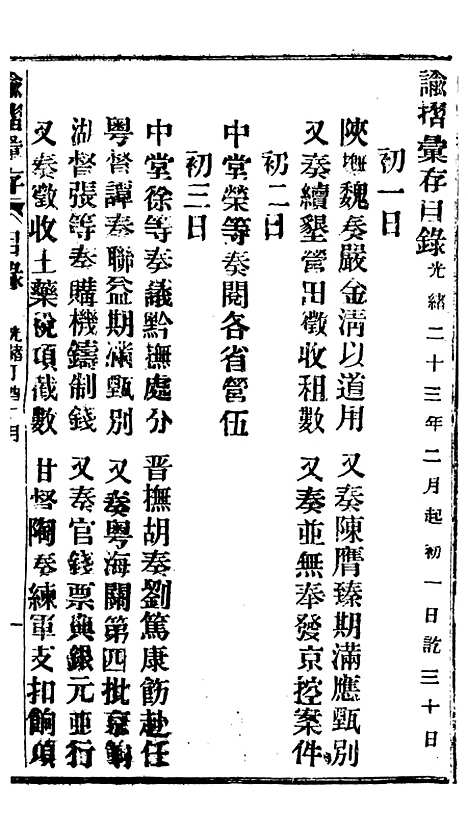 諭摺彙存目錄光緒二十三年二月起初一日訖三十日
初一日
陝撫魏奏嚴金清以道用　又奏陳膺臻期滿應甄別
又奏續墾營田徵收租數　又奏並無奉發京控案件
初二日
中堂榮等奏閱各省營伍
初三日
中堂徐等奏議黔撫處分　晋撫胡奏劉篤康飭赴任
粵督譚奏聯益期滿甄別　又奏粵海關第四批京餉
湖督張等奏購機鑄制錢　又奏官錢票與銀元並行
又奏徵收土藥稅項截數　甘督陶奏練軍支扣餉項
諭摺彙存　目錄　光緒丁酉二月　一